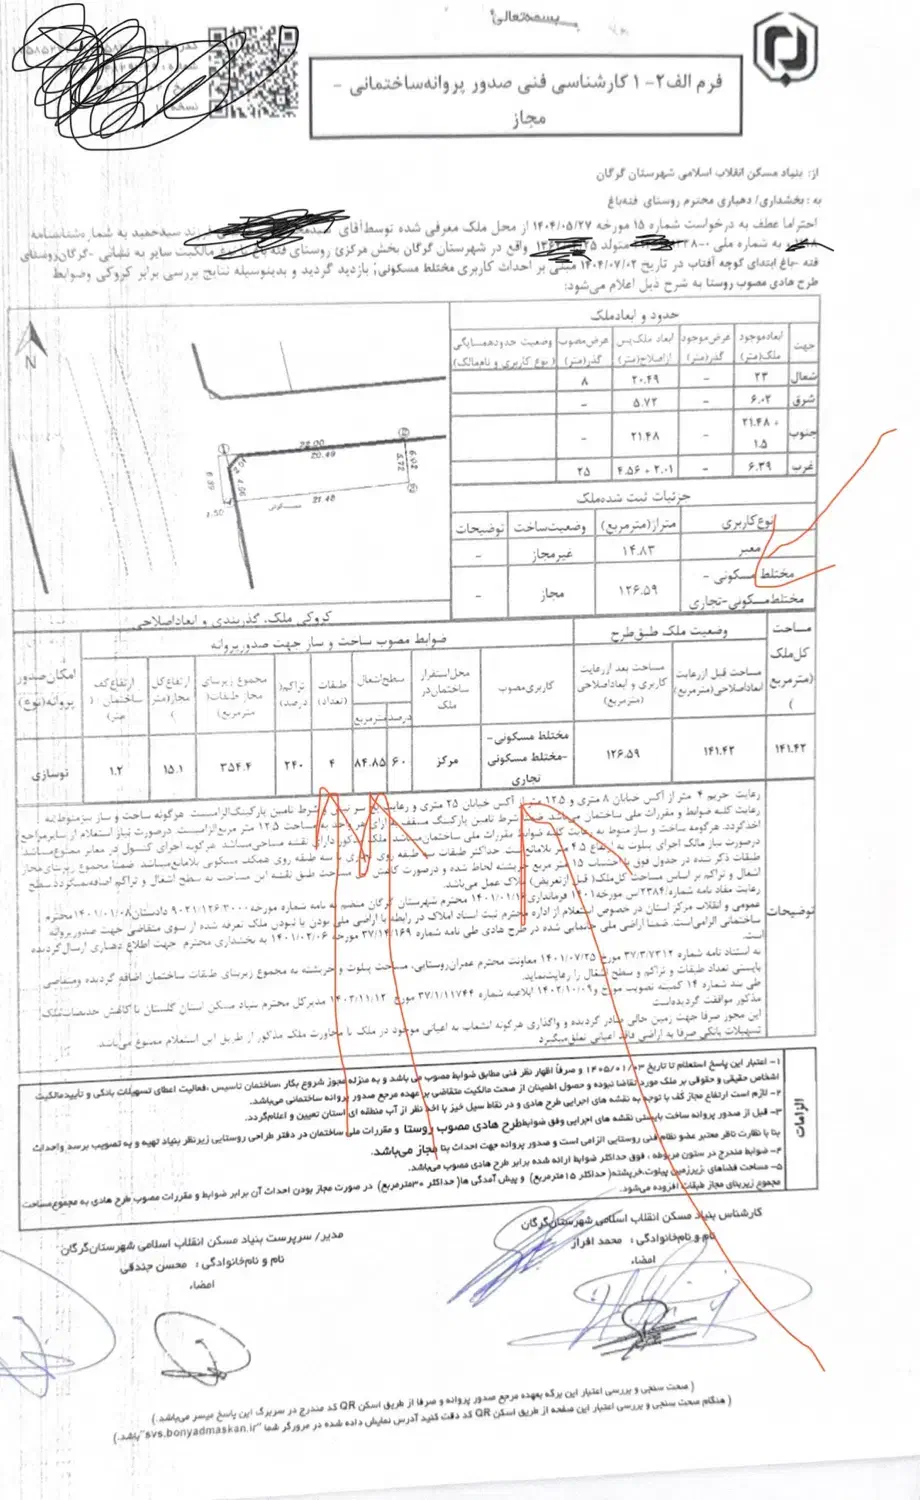 بسمه‌تعالی
فرم الف۲-۱ کارشناسی فنی صدور پروانه‌ساختمانی -
مجاز
از: بنیاد مسکن انقلاب اسلامی شهرستان گرگان
به: بخشداری/ دهیاری محترم روستای فته‌باغ
احتراما عطف به درخواست شماره ۱۵ مورخه ۱۴۰۴/۰۵/۲۷ از محل ملک معرفی شده توسط‌آقای فرزند سیدحمید به شماره‌شناسنامه
و به شماره ملی متولد واقع در شهرستان گرگان بخش مرکزی روستای فته باغ مالکیت سایر به نشانی -گرگان‌روستای
فته -باغ ابتدای کوچه آفتاب در تاریخ ۱۴۰۴/۰۷/۰۲ مبنی بر احداث کاربری مختلط مسکونی; بازدید گردید و بدینوسیله نتایج بررسی برابر کروکی وضوابط
طرح هادی مصوب روستا به شرح ذیل اعلام می‌شود:
حدود و ابعادملک
جهت | ابعادموجود ملک(متر) | عرض‌موجود گذر(متر) | ابعاد ملک‌پس ازاصلاح(متر) | عرض‌مصوب گذر(متر) | وضعیت حدودهمسایگی (نوع کاربری و نام‌مالک)
شمال | ۲۳ | - | ۲۰.۴۹ | ۸
شرق | ۶.۰۲ | - | ۵.۷۲ | -
جنوب | ۲۱.۴۸ + ۱.۵ | - | ۲۱.۴۸ | -
غرب | ۶.۳۹ | - | ۴.۵۶ + ۲.۰۱ | ۲۵
N
22.00
20.49
6.02
5.72
2.01
4.56
21.48
1.50
مسکونی
جزئیات ثبت شده‌ملک
نوع‌کاربری | متراژ(مترمربع) | وضعیت‌ساخت | توضیحات
معبر | ۱۴.۸۳ | غیرمجاز | -
مختلط مسکونی - مختلط‌مسکونی-تجاری | ۱۲۶.۵۹ | مجاز | -
کروکی ملک، گذربندی و ابعاداصلاحی
مساحت کل‌ملک (مترمربع) | وضعیت ملک طبق‌طرح | ضوابط مصوب ساخت و ساز جهت صدورپروانه | امکان‌صدور پروانه(نوع)
مساحت قبل ازرعایت ابعاداصلاحی(مترمربع) | مساحت بعد ازرعایت کاربری و ابعاداصلاحی (مترمربع) | کاربری‌مصوب | محل‌استقرار ساختمان‌در ملک | سطح‌اشغال | درصد | مترمربع | طبقات (تعداد) | تراکم( درصد) | مجموع زیربنای مجاز طبقات( مترمربع) | ارتفاع‌کل مجاز(متر ) | ارتفاع‌کف ساختمان ( متر)
۱۴۱.۴۲ | ۱۴۱.۴۲ | ۱۲۶.۵۹ | مختلط مسکونی- مختلط مسکونی- تجاری | مرکز | ۶۰ | ۸۴.۸۵ | ۴ | ۲۴۰ | ۳۵۴.۴ | ۱۵.۱ | ۱.۲ | نوسازی
توضیحات
رعایت حریم ۴ متر از آکس خیابان ۸ متری و ۱۲.۵ متر از آکس خیابان ۲۵ متری و رعایت پخ سر نبش و شرط تامین پارکینگ‌الزامیست. هرگونه ساخت و ساز منوط‌به
رعایت کلیه ضوابط و مقررات ملی ساختمان می‌باشد. ضمنا شرط تامین پارکینگ مسقف به ازای هر واحد به مساحت ۱۲.۵ متر مربع الزامیست. درصورت نیاز استعلام از سایرمراجع
درصورت نیاز مالک اجرای پیلوت به ارتفاع ۴.۵ متر بلامانع‌است. حداکثر طبقات سه طبقه روی تجاری یا سه طبقه روی همکف مسکونی بلامانع‌میباشد. ضمنا مجموع زیربنای‌مجاز
طبقات ذکر شده در جدول فوق با احتساب ۱۵ متر مربع خرپشته لحاظ شده و درصورت کاهش مساحت طبق نقشه این مساحت به سطح اشغال و تراکم اضافه‌نمیگردد.سطح
اشغال و تراکم بر اساس مساحت کل‌ملک( قبل ازتعریض) ملاک عمل می‌باشد.
عمومی و انقلاب مرکز استان در خصوص استعلام از اداره محترم ثبت اسناد املاک در رابطه با اراضی ملی بودن یا نبودن ملک تعرفه شده از سوی متقاضی جهت صدورپروانه
ساختمانی الزامی‌است. ضمنا اراضی ملی جانمایی شده در طرح هادی طی نامه شماره ۳۷/۱۴/۱۶۹ مورخه ۱۴۰۱/۰۲/۰۶ به بخشداری محترم جهت اطلاع دهیاری ارسال‌گردیده
است.
به استناد نامه شماره ۳۷/۳/۷۳۱۲ مورخ ۱۴۰۱/۰۷/۲۵ معاونت محترم عمران‌روستایی، مساحت پیلوت و خرپشته به مجموع زیربنای طبقات ساختمان اضافه گردیده ومتقاضی
بایستی تعداد طبقات و تراکم و سطح اشغال را رعایت‌نماید.
طی بند شماره ۱۴ کمیته تصویب مورخ ۱۴۰۲/۱۰/۰۹ و ابلاغیه شماره ۳۷/۱/۱۱۷۴۴ مورخ ۱۴۰۲/۱۱/۱۲ مدیرکل محترم بنیاد مسکن استان گلستان با کاهش حدنصاب‌ملک
مذکور موافقت گردیده‌است
این مجوز صرفا جهت زمین خالی صادر گردیده و واگذاری هرگونه انشعاب به اعیانی موجود در ملک یا مجاورت ملک مذکور از طریق این استعلام ممنوع می‌باشد.
تسهیلات بانکی صرفا به اراضی فاقد اعیانی تعلق‌میگیرد
الزامات
۱- اعتبار این پاسخ استعلام تا تاریخ ۱۴۰۵/۰۱/۰۳ و صرفاً اظهار نظر فنی مطابق ضوابط مصوب می باشد و به منزله مجوز شروع بکار ،ساختمان تاسیس ،فعالیت اعطای تسهیلات بانکی و تاییدمالکیت
اشخاص حقیقی و حقوقی بر ملک مورد تقاضا نبوده و حصول اطمینان از صحت مالکیت متقاضی بر عهده مرجع صدور پروانه ساختمانی می‌باشد.
۲- لازم است ارتفاع مجاز کف با توجه به نقشه های اجرایی طرح هادی و در نقاط سیل خیز با اخذ نظر از آب منطقه ای استان تعیین و اعلام‌گردد.
۳- قبل از صدور پروانه ساخت بایستی نقشه‌های اجرایی وفق ضوابط‌طرح هادی مصوب روستا و مقررات ملی ساختمان در دفتر طراحی روستایی زیرنظر بنیاد تهیه و به تصویب برسد واحداث
بنا با نظارت ناظر معتبر عضو نظام فنی روستایی الزامی است و صدور پروانه جهت احداث بنا مجاز می‌باشد.
۴- ضوابط مندرج در ستون مربوطه ، فوق حداکثر ضوابط ارائه شده برابر طرح هادی مصوب می‌باشد.
۵- مساحت فضاهای ،زیرزمین پیلوت،خرپشته(حداکثر ۱۵مترمربع) و پیش آمدگی ها(حداکثر ۳۰مترمربع) در صورت مجاز بودن احداث آن برابر ضوابط و مقررات مصوب طرح هادی به مجموع‌مساحت
مجموع زیربنای مجاز طبقات افزوده می‌شود.
کارشناس بنیاد مسکن انقلاب اسلامی شهرستان‌گرگان
نام و نام‌خانوادگی : محمد افراز
امضاء
مدیر/ سرپرست بنیاد مسکن انقلاب اسلامی شهرستان‌گرگان
نام و نام‌خانوادگی : محسن جندقی
امضاء
( صحت سنجی و بررسی اعتبار این برگه بعهده مرجع صدور پروانه و صرفا از طریق اسکن QR کد مندرج در سربرگ این پاسخ میسر می‌باشد.)
( هنگام صحت سنجی و بررسی اعتبار این صفحه از طریق اسکن QR کد دقت کنید آدرس نمایش داده شده در مرورگر شما "svs.bonyadmaskan.ir" باشد.)